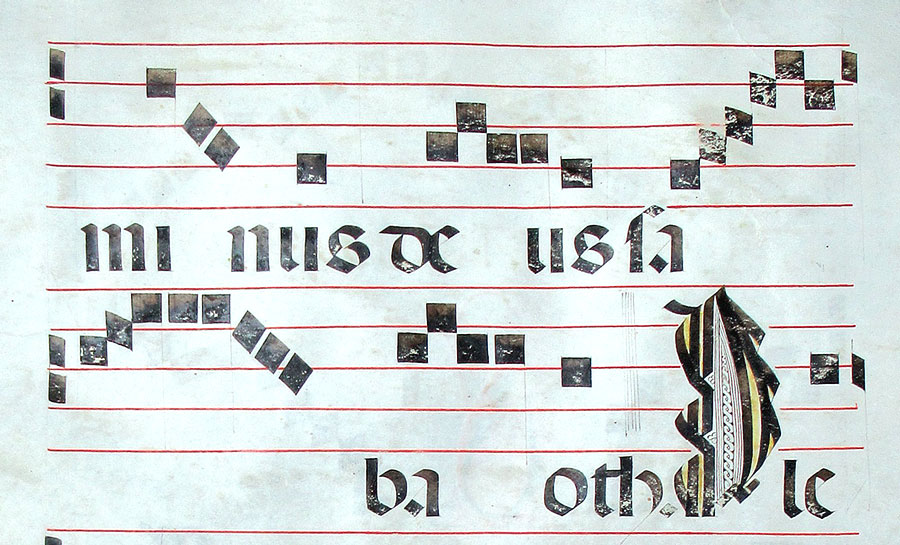 mi nus de us ſa
ba oth. P le